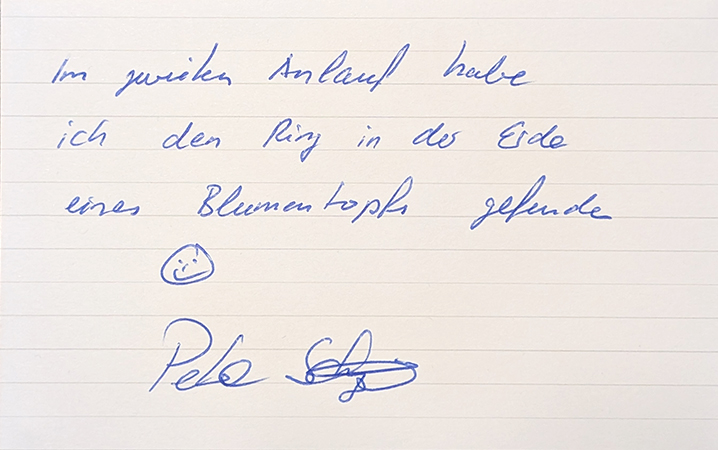 Im zweiten Anlauf habe
ich den Ring in der Erde
eines Blumentopfs gefunden
Peter